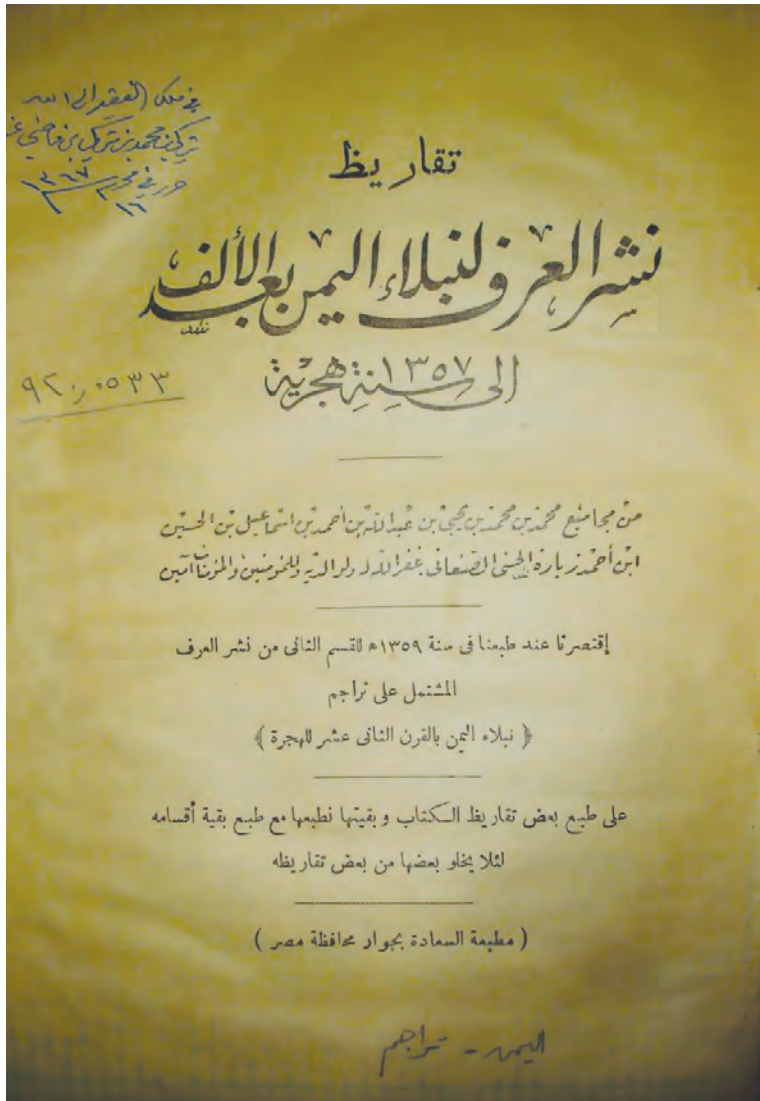 في ملك الفقير إلى الله
تركي بن محمد بن تركي بن ماضي
حرر في محرم
١٣٦٧
تقاريظ
نشر العرف لنبلاء اليمن بعد الألف
الى سنة ١٣٥٧ هجرية
٩٢٠٫٠٥٣٣
من مجاميع محمد بن محمد بن يحيى بن عبدالله بن أحمد بن اسماعيل بن الحسين
ابن أحمد زبارة الحسنى الصنعانى غفرالله له ولوالديه وللمؤمنين والمؤمنات آمين
إقتصرنا عند طبعنا فى سنة ١٣٥٩ھ للقسم الثانى من نشر العرف
المشتمل على تراجم
﴿ نبلاء اليمن بالقرن الثانى عشر للهجرة ﴾
على طبع بعض تقاريظ الكتاب وبقيتها نطبعها مع طبع بقية أقسامه
لئلا يخلو بعضها من بعض تقاريظه
( مطبعة السعادة بجوار محافظة مصر )
اليمن - تراجم